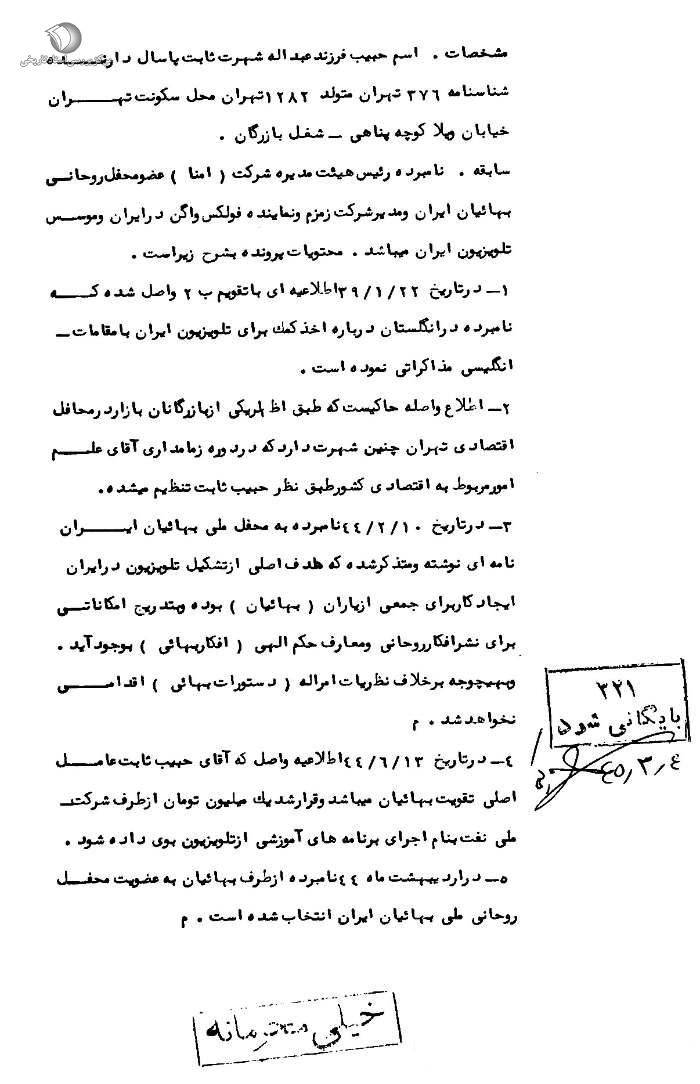 مرکز بررسی اسناد تاریخی
مشخصات . اسم حبیب فرزند عبداله شهرت ثابت پاسال دارنـــده
شناسنامه ۳۷۶ تهران متولد ۱۲۸۲ تهران محل سکونت تهـــران
خیابان ویلا کوچه پناهی ــ شغل بازرگان .
سابقه . نامبرده رئیس هیئت مدیره شرکت ( امنا ) عضو محفل روحانـی
بهائیان ایران ومدیر شرکت زمزم ونماینده فولکس واگن در ایران وموسس
تلویزیون ایران میباشد . محتویات پرونده بشرح زیر است .
۱ــ در تاریخ ۳۹/۱/۲۲ اطلاعیه ای با تقویم ب ۲ واصل شده کـــه
نامبرده در انگلستان درباره اخذ کمک برای تلویزیون ایران با مقامات ــ
انگلیسی مذاکراتی نموده است .
۲ــ اطلاع واصله حاکیست که طبق اظهار یکی از بازرگانان بازار در محافل
اقتصادی تهران چنین شهرت دارد که در دوره زمامداری آقای علــم
امور مربوط به اقتصادی کشور طبق نظر حبیب ثابت تنظیم میشده .
۳ــ در تاریخ ۴۴/۲/۱۰ نامبرده به محفل ملی بهائیان ایـــران
نامه ای نوشته ومتذکر شده که هدف اصلی از تشکیل تلویزیون در ایران
ایجاد کار برای جمعی از یاران ( بهائیان ) بوده وبتدریج امکاناتـی
برای نشر افکار روحانی ومعارف حکم الهی ( افکار بهائی ) بوجود آید .
وبهیچوجه بر خلاف نظریات امراله ( دستورات بهائی ) اقدامــی
نخواهد شد . م
۴ــ در تاریخ ۴۴/۶/۱۳ اطلاعیه واصل که آقای حبیب ثابت عامــل
اصلی تقویت بهائیان میباشد وقرار شد یک میلیون تومان از طرف شرکت
ملی نفت بنام اجرای برنامه های آموزشی از تلویزیون بوی داده شود .
۵ــ در اردیبهشت ماه ۴۴ نامبرده از طرف بهائیان به عضویت محفــل
روحانی ملی بهائیان ایران انتخاب شده است . م
۳۲۱
بایگانی شود
۴۵٫۳٫۴
خیلی محترمانه